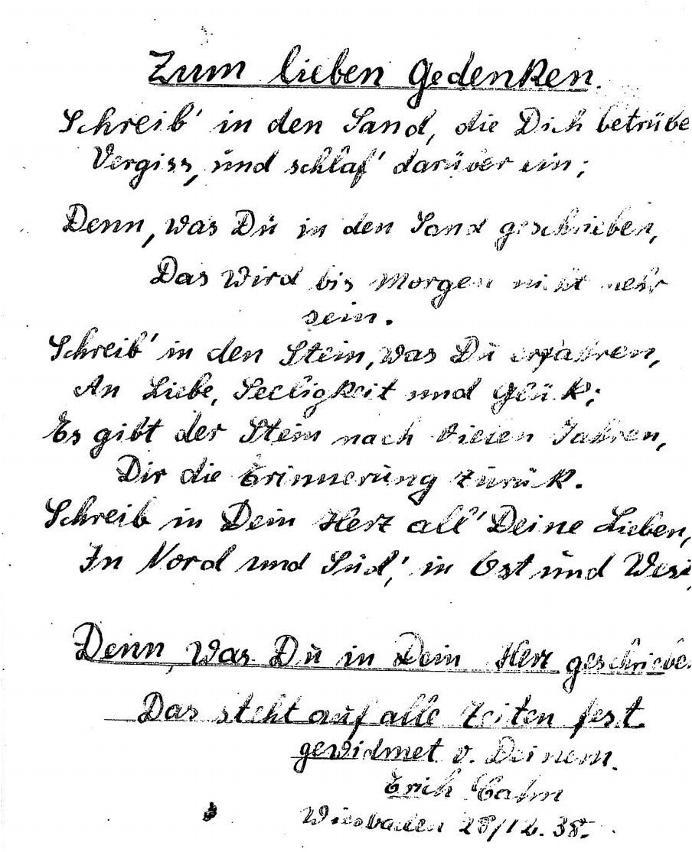 Zum lieben Gedenken.
Schreib' in den Sand, die Dich betrübe
Vergiss, und schlaf' darüber ein;
Denn, was Du in den Sand geschrieben,
Das wird bis Morgen nicht mehr
sein.
Schreib' in den Stein, was Du erfahren,
An Liebe, Seeligkeit und Glück;
Es gibt der Stein nach vielen Jahren,
Dir die Erinnerung zurück.
Schreib in Dein Herz all' Deine Lieben,
In Nord und Süd, in Ost und West,
Denn, was Du in Dein Herz geschriebe
Das steht auf alle Zeiten fest
gewidmet v. Deinem.
Erich Cahn
Wiesbaden 28/12. 38.